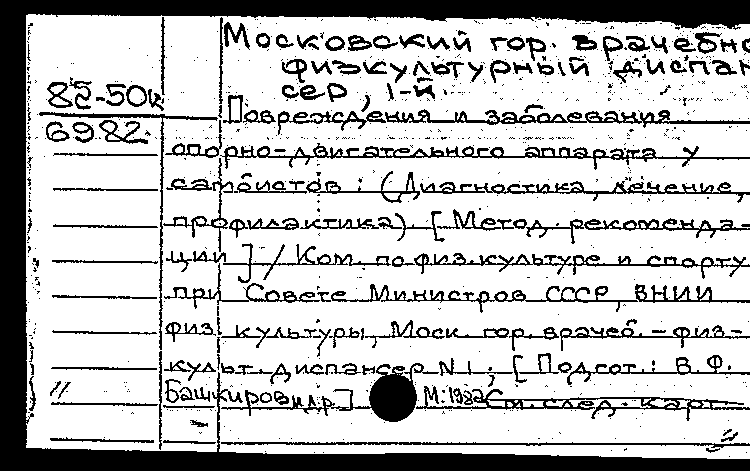 Московский гор. врачебно
физкультурный диспан
сер, 1-й.
82-50к
6982.
Повреждения и заболевания
опорно-двигательного аппарата у
самбистов : (Диагностика, лечение,
профилактика). [Метод. рекоменда-
ции] / Ком. по физ.культуре и спорту
при Совете Министров СССР, ВНИИ
физ. культуры, Моск. гор. врачеб.-физ-
культ. диспансер N 1 ; [Подгот.: В.Ф.
Башкиров и др.] М.: 1982 См. след. карт